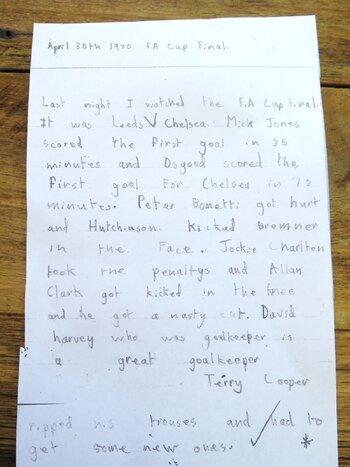 April 30th 1970 FA Cup Final.
Last night I watched the F.A Cup Final.
It was Leeds V Chelsea. Mick Jones
scored the first goal in 35
minutes and Osgood scored the
first goal For Chelsea in 78
minutes. Peter Bonetti got hurt
and Hutchinson Kicked Bremner
in the Face. Jackie Charlton
took the penaltys and Allan
Clark got kicked in the knee
and he got a nasty cut. David
harvey who was goalkeeper is
a great goalkeeper
Terry Cooper
ripprd his trouses and had to
get some new ones. *